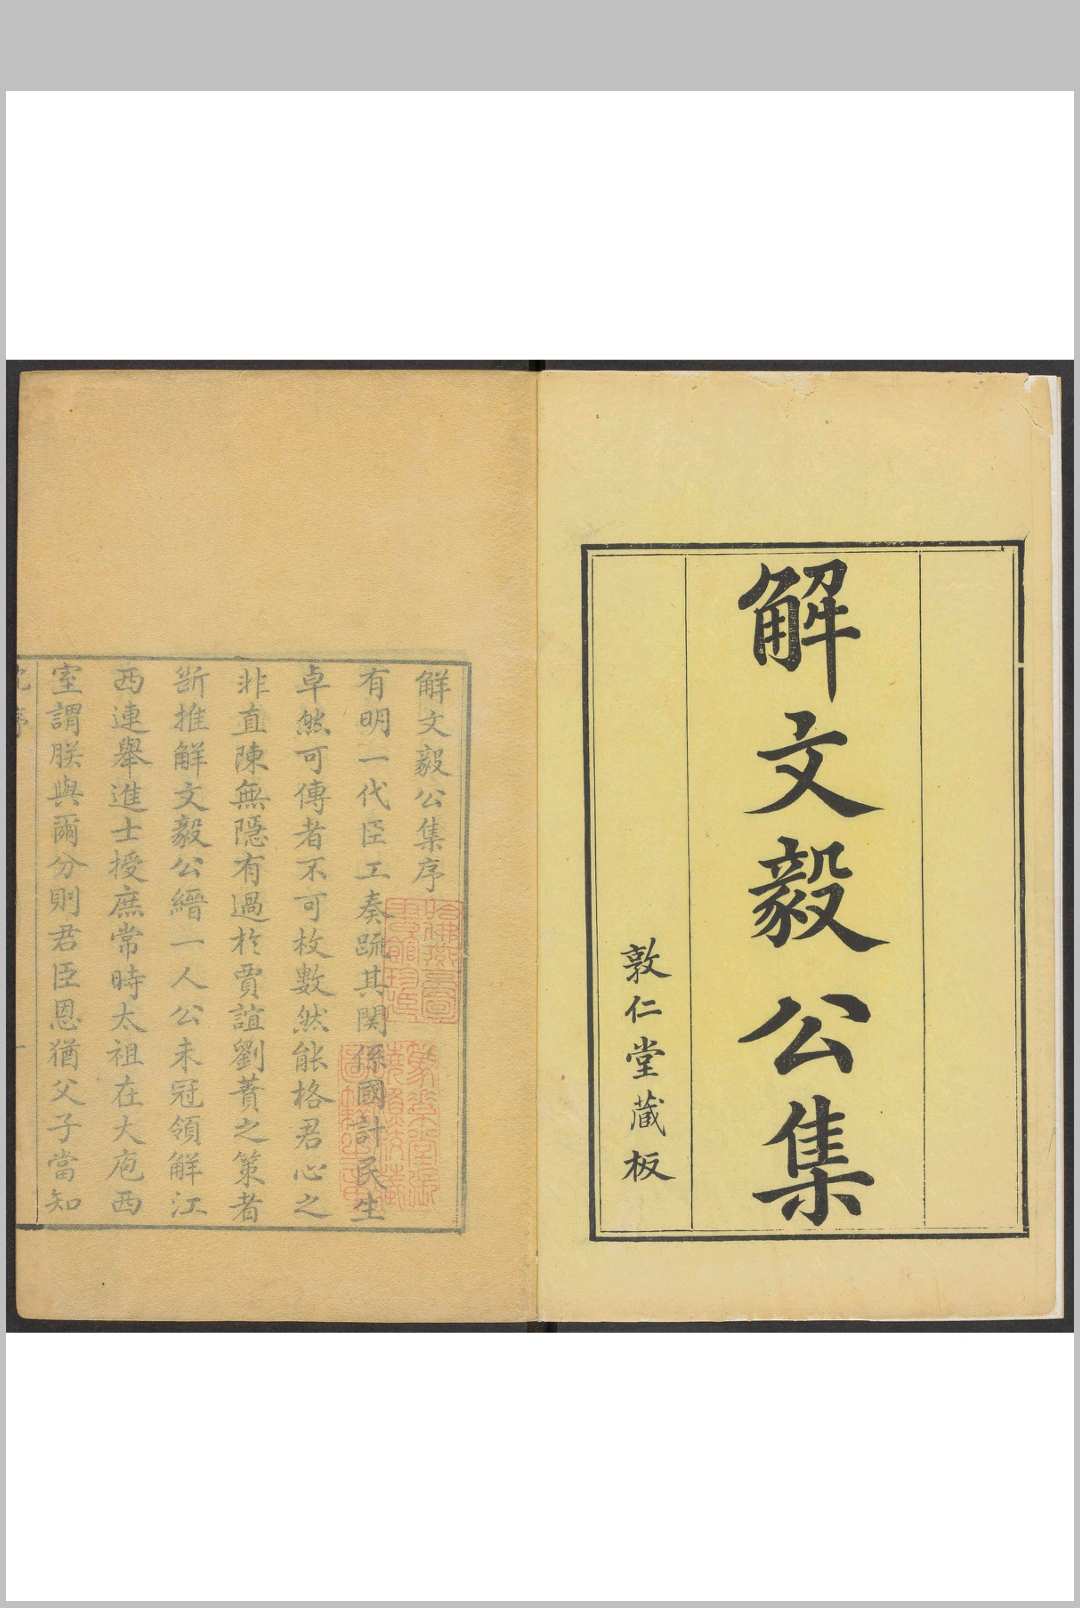 解文毅公集
敦仁堂藏板
解文毅公集序
有明一代臣工奏疏其関係國計民生
卓然可傳者不可枚數然能格君心之
非直陳無隱有過於賈誼劉蕡之策者
斷推解文毅公縉一人公未冠領解江
西連舉進士授庶常時太祖在大庖西
室謂朕與爾分則君臣恩猶父子當知